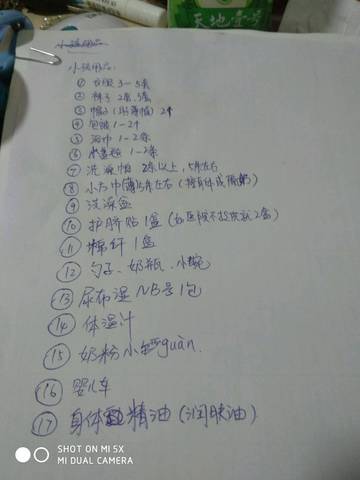 天地壹号
小孩用品
小孩用品:
① 衣服 3-5套
② 裤子 2套,3套
③ 帽子 (
帽) 2个
④ 包被 1-2个
⑤ 浴巾 1-2条
⑥ 1-2条
⑦ 洗澡帕 2条以上,5条左右
⑧ 小方巾(薄)5条左右 (
⑨ 洗澡盆
⑩ 护脐贴 1盒 (如医院不提供就2盒)
⑪ 棉纤 1盒
⑫ 勺子、奶瓶、小碗
⑬ 尿布湿 NB号1包
⑭ 体温计
⑮ 奶粉小guàn.
⑯ 婴儿车
⑰ 身体精油 (润肤油)
SHOT ON MI 5X
MI DUAL CAMERA